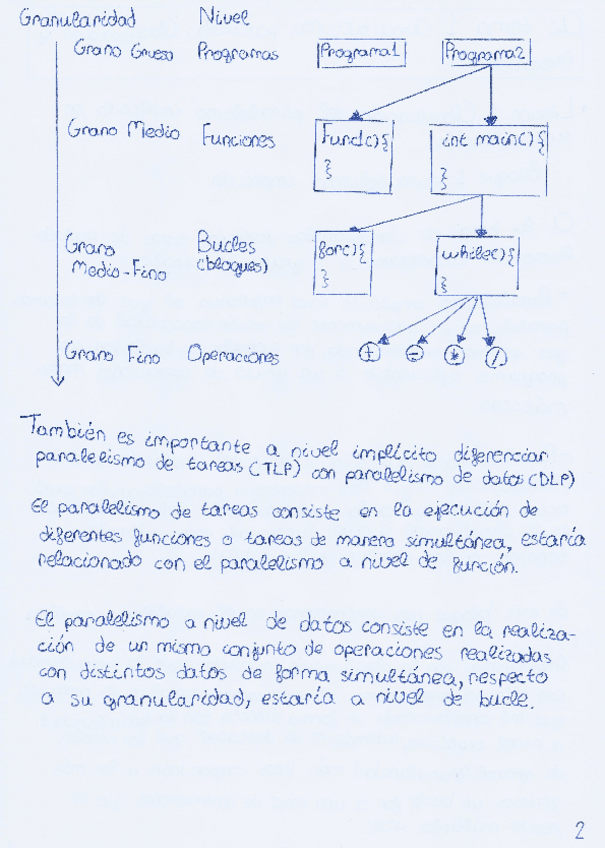 Granularidad Nivel
Grano Grueso Programas Programa1 Programa2
Grano Medio Funciones Func1(){ int main(){
} }
Grano Bucles for(){ while(){
Medio-Fino (bloques) } }
Grano Fino Operaciones + - * /
También es importante a nivel implícito diferenciar
paralelismo de tareas (TLP) con paralelismo de datos (DLP)
El paralelismo de tareas consiste en la ejecución de
diferentes funciones o tareas de manera simultánea, estaría
relacionado con el paralelismo a nivel de función.
El paralelismo a nivel de datos consiste en la realiza-
ción de un mismo conjunto de operaciones realizadas
con distintos datos de forma simultánea, respecto
a su granularidad, estaría a nivel de bucle.
2